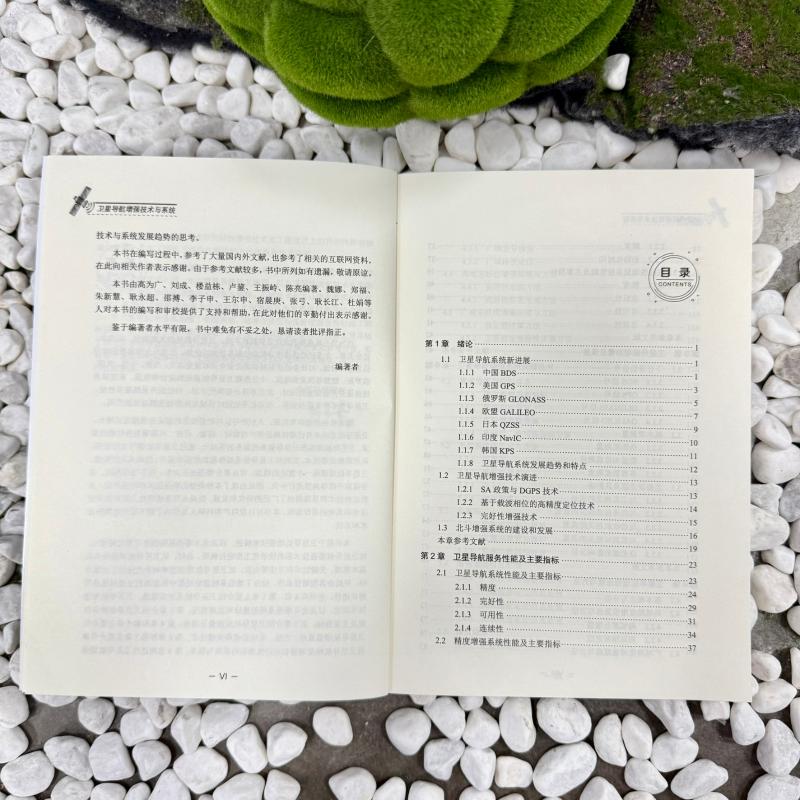 卫星导航增强技术与系统
技术与系统发展趋势的思考。
本书在编写过程中，参考了大量国内外文献，也参考了相关的互联网资料，
在此向相关作者表示感谢。由于参考文献较多，书中所列如有遗漏，敬请原谅。
本书由高为广、刘成、楼益栋、卢鋆、王振岭、陈亮编著。魏娜、郑福、
朱新慧、耿永超、邵搏、李子申、王尔申、宿晨庚、张弓、耿长江、杜娟等
人对本书的编写和审校提供了支持和帮助，在此对他们的辛勤付出表示感谢。
鉴于编著者水平有限，书中难免有不妥之处，恳请读者批评指正。
编著者
— VI —
目录
CONTENTS
第1章 绪论 1
1.1 卫星导航系统新进展 1
1.1.1 中国BDS 1
1.1.2 美国GPS 4
1.1.3 俄罗斯GLONASS 5
1.1.4 欧盟GALILEO 7
1.1.5 日本QZSS 9
1.1.6 印度NavIC 10
1.1.7 韩国KPS 11
1.1.8 卫星导航系统发展趋势和特点 12
1.2 卫星导航增强技术演进 13
1.2.1 SA政策与DGPS技术 13
1.2.2 基于载波相位的高精度定位技术 14
1.2.3 完好性增强技术 15
1.3 北斗增强系统的建设和发展 16
本章参考文献 19
第2章 卫星导航服务性能及主要指标 23
2.1 卫星导航系统性能及主要指标 23
2.1.1 精度 24
2.1.2 完好性 29
2.1.3 可用性 31
2.1.4 连续性 34
2.2 精度增强系统性能及主要指标 37